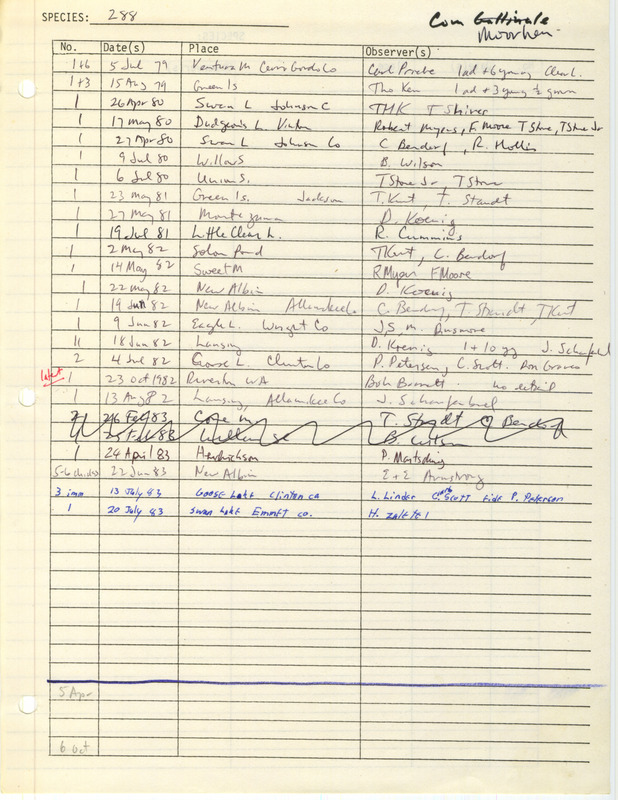 SPECIES: 288
Com Gallinule
Moorhen
No. Date(s) Place Observer(s)
1+6 5 Jul 79 Ventura M Cerro Gordo Co Carl Priebe 1 ad + 6 young Clear L.
1+3 15 Aug 79 Green Is Tho Kent 1 ad + 3 young ½ grown
1 26 Apr 80 Swan L Johnson C THK T Shires
1 17 May 80 Dudgeon L Vinton Robert Myers, F. Moore T Stone, T Stone Jr
1 27 Apr 80 Swan L Johnson Co C Bendorf, R. Hollis
1 9 Jul 80 Willow S B. Wilson
1 6 Jul 80 Union S. T Stone Jr, T Stone
1 23 May 81 Green Is. Jackson T. Kent, T. Staudt
1 27 May 81 Montezuma D. Koenig
1 19 Jul 81 Little Clear L. R. Cummins
1 2 May 82 Solon Pond T Kent, C. Bendorf
1 14 May 82 Sweet M R Myers F Moore
1 22 May 82 New Albin D. Koenig
1 19 Jun 82 New Albin Allamakee Co C. Bendorf, T. Staudt, T Kent
1 9 Jun 82 Eagle L. Wright Co J, S, M. Dinsmore
11 18 Jun 82 Lansing D. Koenig 1 + 10 yg J. Schaufenbuel
2 4 Jul 82 Goose L. Clinton Co P. Petersen, C. Scott. Ron Graves
latest 1 23 Oct 1982 Riverton WA Bob Barratt - no detail
1 13 Aug 82 Lansing, Allamakee Co J. Schaufenbuel
26 Feb 83 Cone M T. Staudt C Bendorf
25 Feb 83 B Wilson
1 24 April 83 Hendrickson P. Martsching
5-6 chicks 22 Jun 83 New Albin E + E Armstrong
3 imm 13 July 83 Goose Lake Clinton Co L. Linder C. Scott fide P. Petersen
1 20 July 83 Swan Lake Emmet Co. H. Zaletel
5 Apr
6 Oct